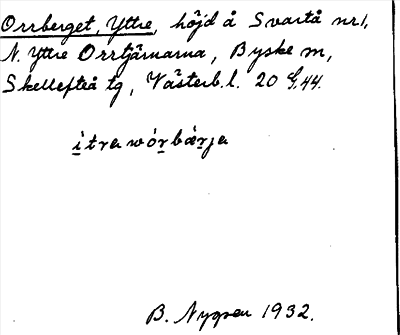 Orrberget, Yttre, höjd å Svartå nr 1,
N. Yttre Orrtjärnarna, Byske sn,
Skellefteå tg, Västerb. l. 20 G. 44.
ı̀tra wórbærja
B. Nygren 1932.